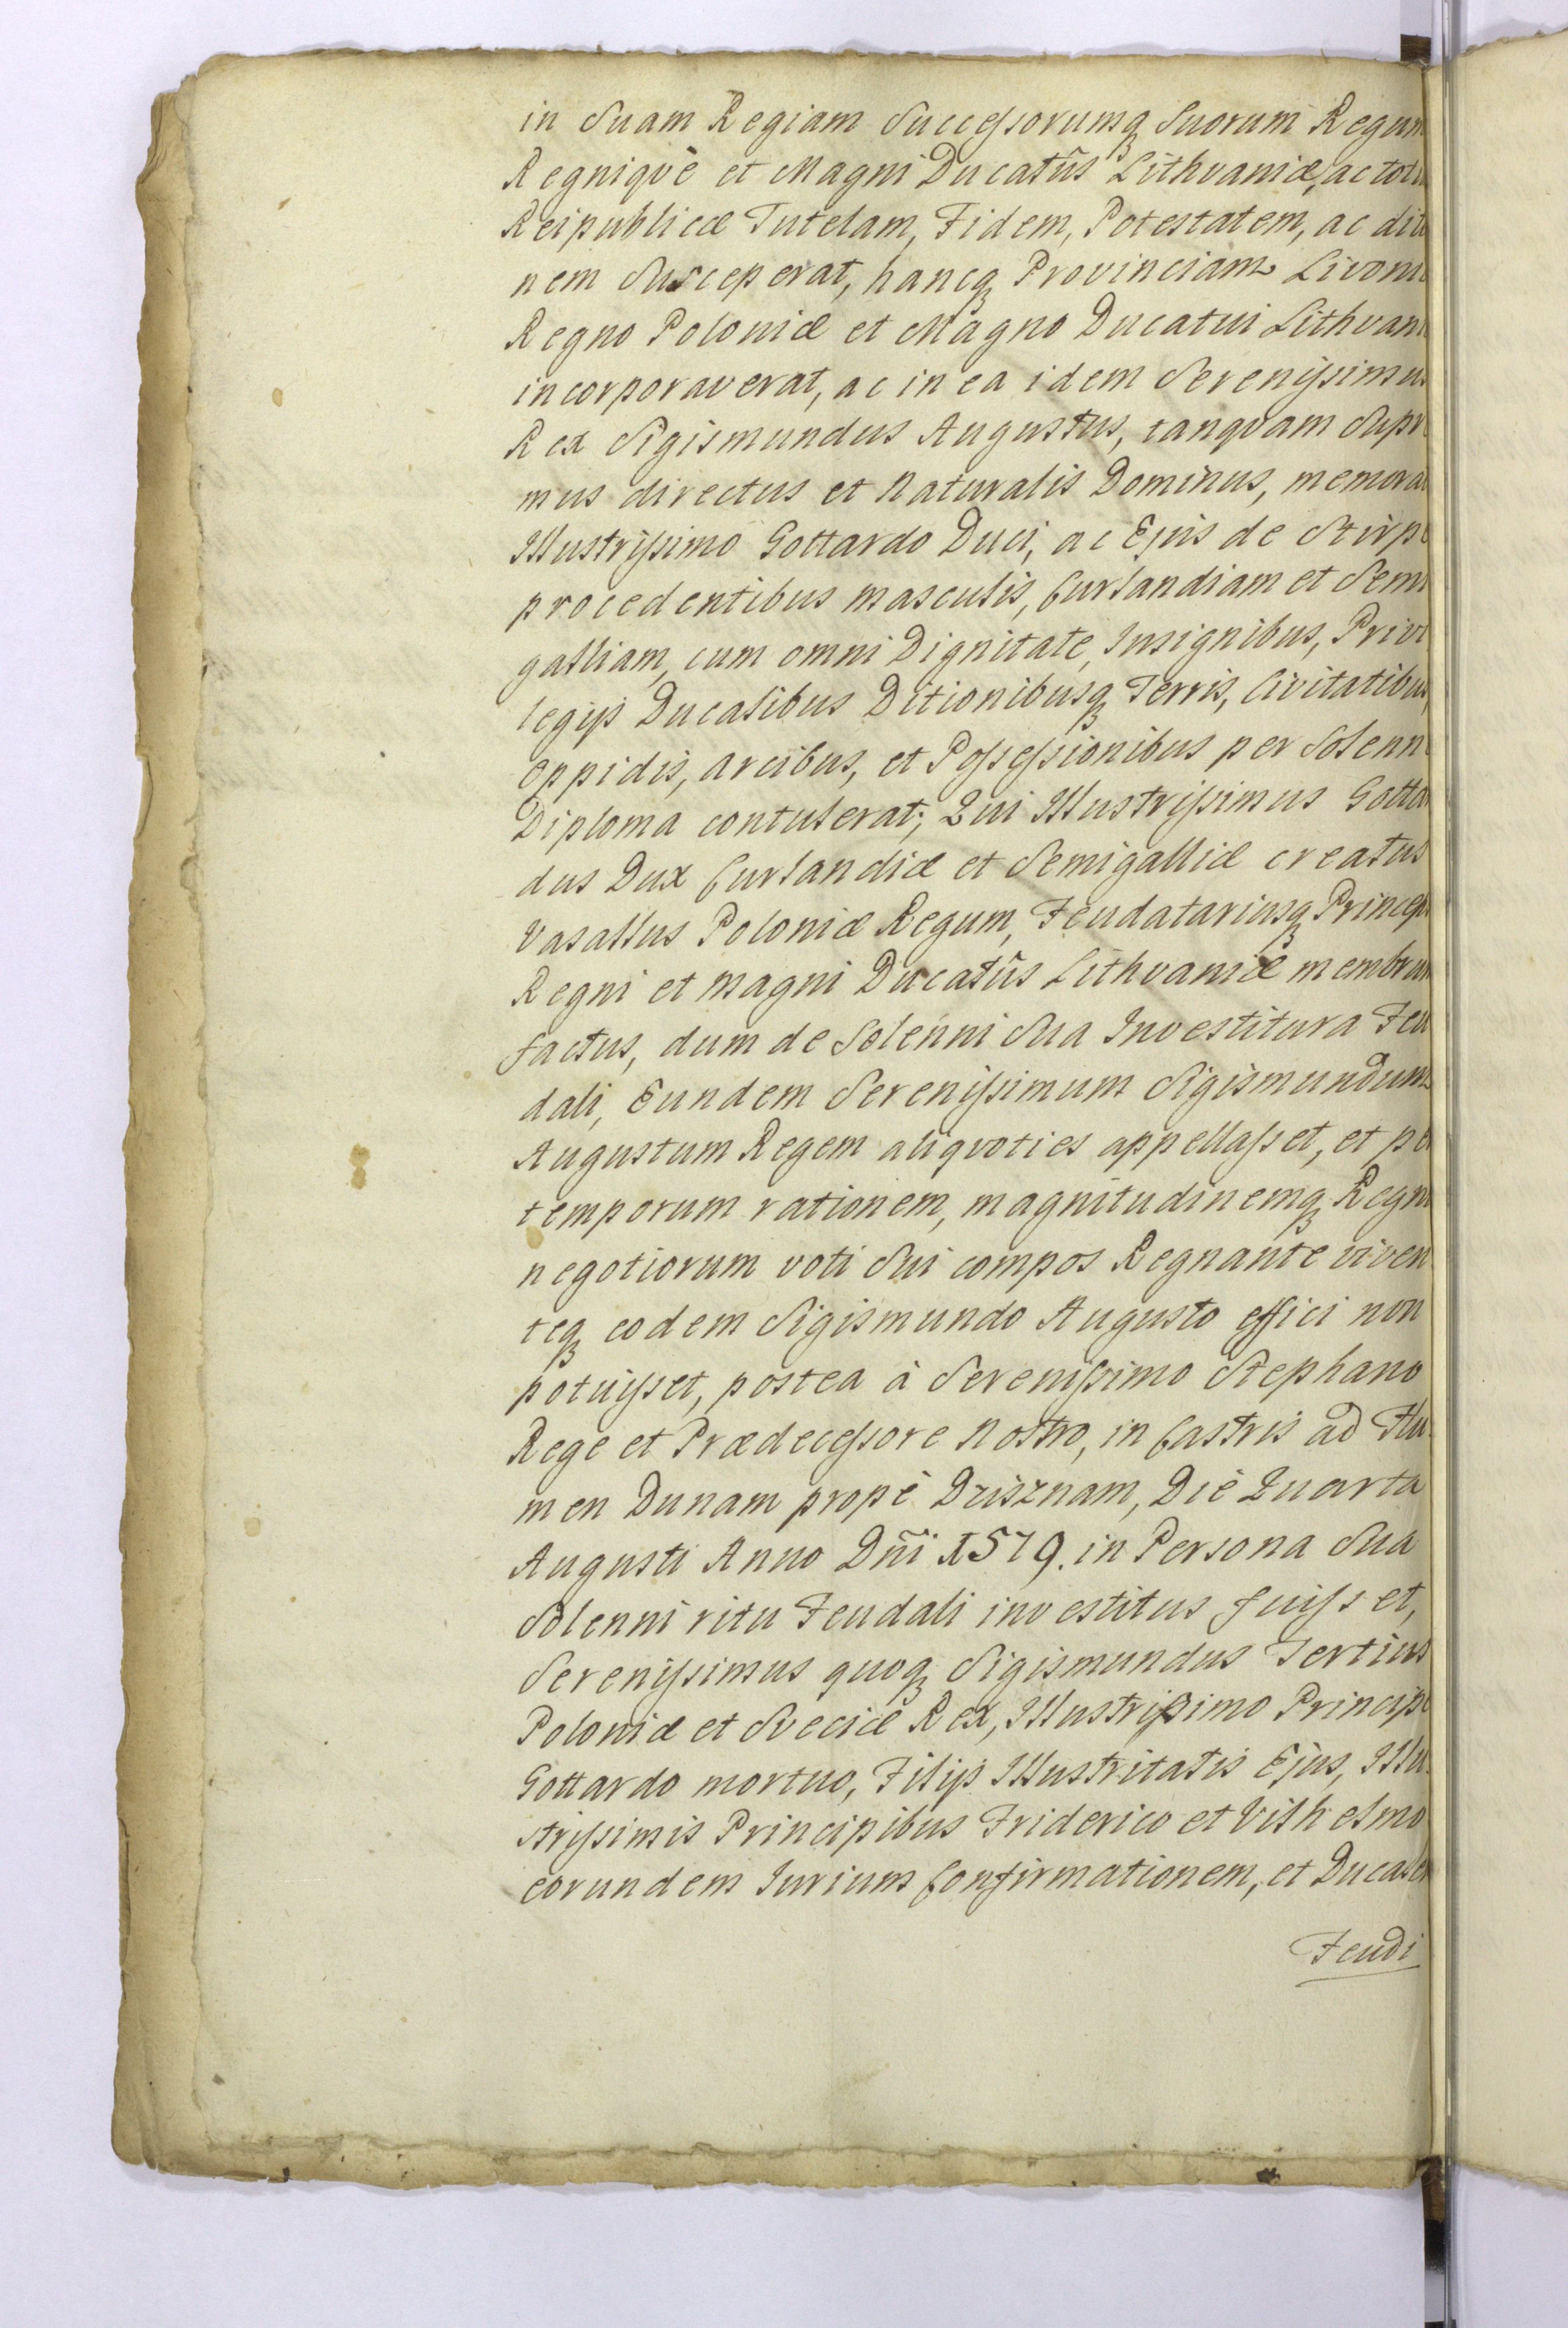 in Suam Regiam Successorumq Suorum Regum
Regniqvè et Magni Ducatûs Lithvaniæ, ac toti
Reipublicæ Tutelam, Fidem, Potestatem, ac diti
nem Susceperat, hancq Provinciam Livoni
Regno Poloniæ et Magno Ducatui Lithvani
incorporaverat, ac in ea idem Serenissimus
Rex Sigismundus Augustus, tanqvam Supr
mus directus et Naturalis Dominus, memorat
Illustrissimo Gottardo Duci, ac Ejus de Stirpe
procedentibus masculis, Curlandiam et Semi
galliam, cum omni Dignitate, Insignibus, Privi
legijs Ducalibus Ditionibusq Terris, Civitatibus,
Oppidis, Arcibus, et Possessionibus per Solenn
Diploma contulerat; Qui Illustrissimus Gottar
dus Dux Curlandiæ et Semigalliæ creatus
Vasallus Poloniæ Regum, Feudatariusq Princeps
Regni et Magni Ducatûs Lithvaniæ membrum
factus, dum de Solenni Sua Investitura Feu
dali, Eundem Serenissimum Sigismundum
Augustum Regem aliqvoties appellasset, et pe
temporum rationem, magnitudinemq Regni
negotiorum voti Sui compos Regnante viven
teq eodem Sigismundo Augusto effici non
potuisset, postea à Serenissimo Stephano
Rege et Prædecessore Nostro, in Castris ad Flu
men Dunam propè Dzisznam, Diè Quarta
Augusti Anno Dñi 1579. in Persona Sua
Solenni ritu Feudali investitus fuisset,
Serenissimus quoq Sigismundus Tertius
Poloniæ et Sveciæ Rex, Illustrissimo Principe
Gottardo mortuo, Filijs Illustritatis Ejus, Illu
strissimis Principibus Friderico et Vilhelmo
eorundem Iurium Confirmationem, et Ducalem
Feudi